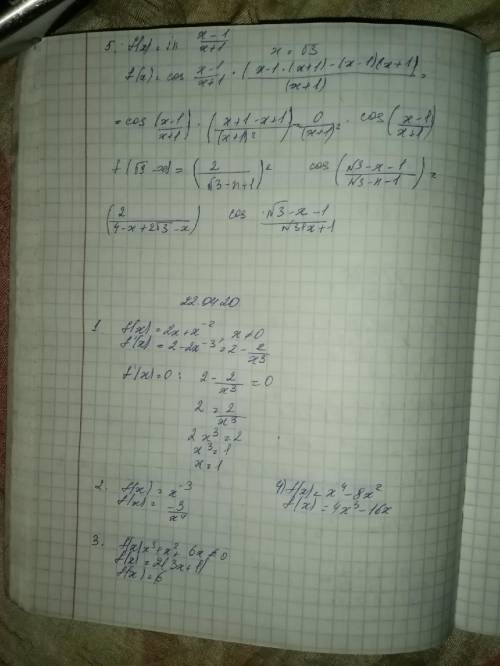 5. f(x) = in x-1/x+1 x = √3
f(x) = cos x-1/x+1 · (x-1·(x+1)-(x-1)(x+1)/(x+1) =
= cos(x-1/x+1) · (x+1-x+1/(x+1)²) = 0/(x+1)² · cos(x-1/x+1)
f(√3 = (2/√3-n+1)² cos(√3-x-1/√3-n-1) =
(2/4-x+2√3-x) cos √3-x-1/√3+x+1
22.04.20
1 f(x) = 2x+x⁻² x≠0
f'(x) = 2-2x⁻³ = 2-2/x³
f'(x)=0: 2-2/x³ = 0
2 = 2/x³
2x³ = 2
x³ = 1
x = 1
2. f(x) = x⁻³ 4) f(x) = x⁴-8x²
f(x) = -3/x⁴ f'(x) = 4x³-16x
3. f(x) x³+x²+ 6x≠0
f(x) = 2(3x+1)
f(x) = 6